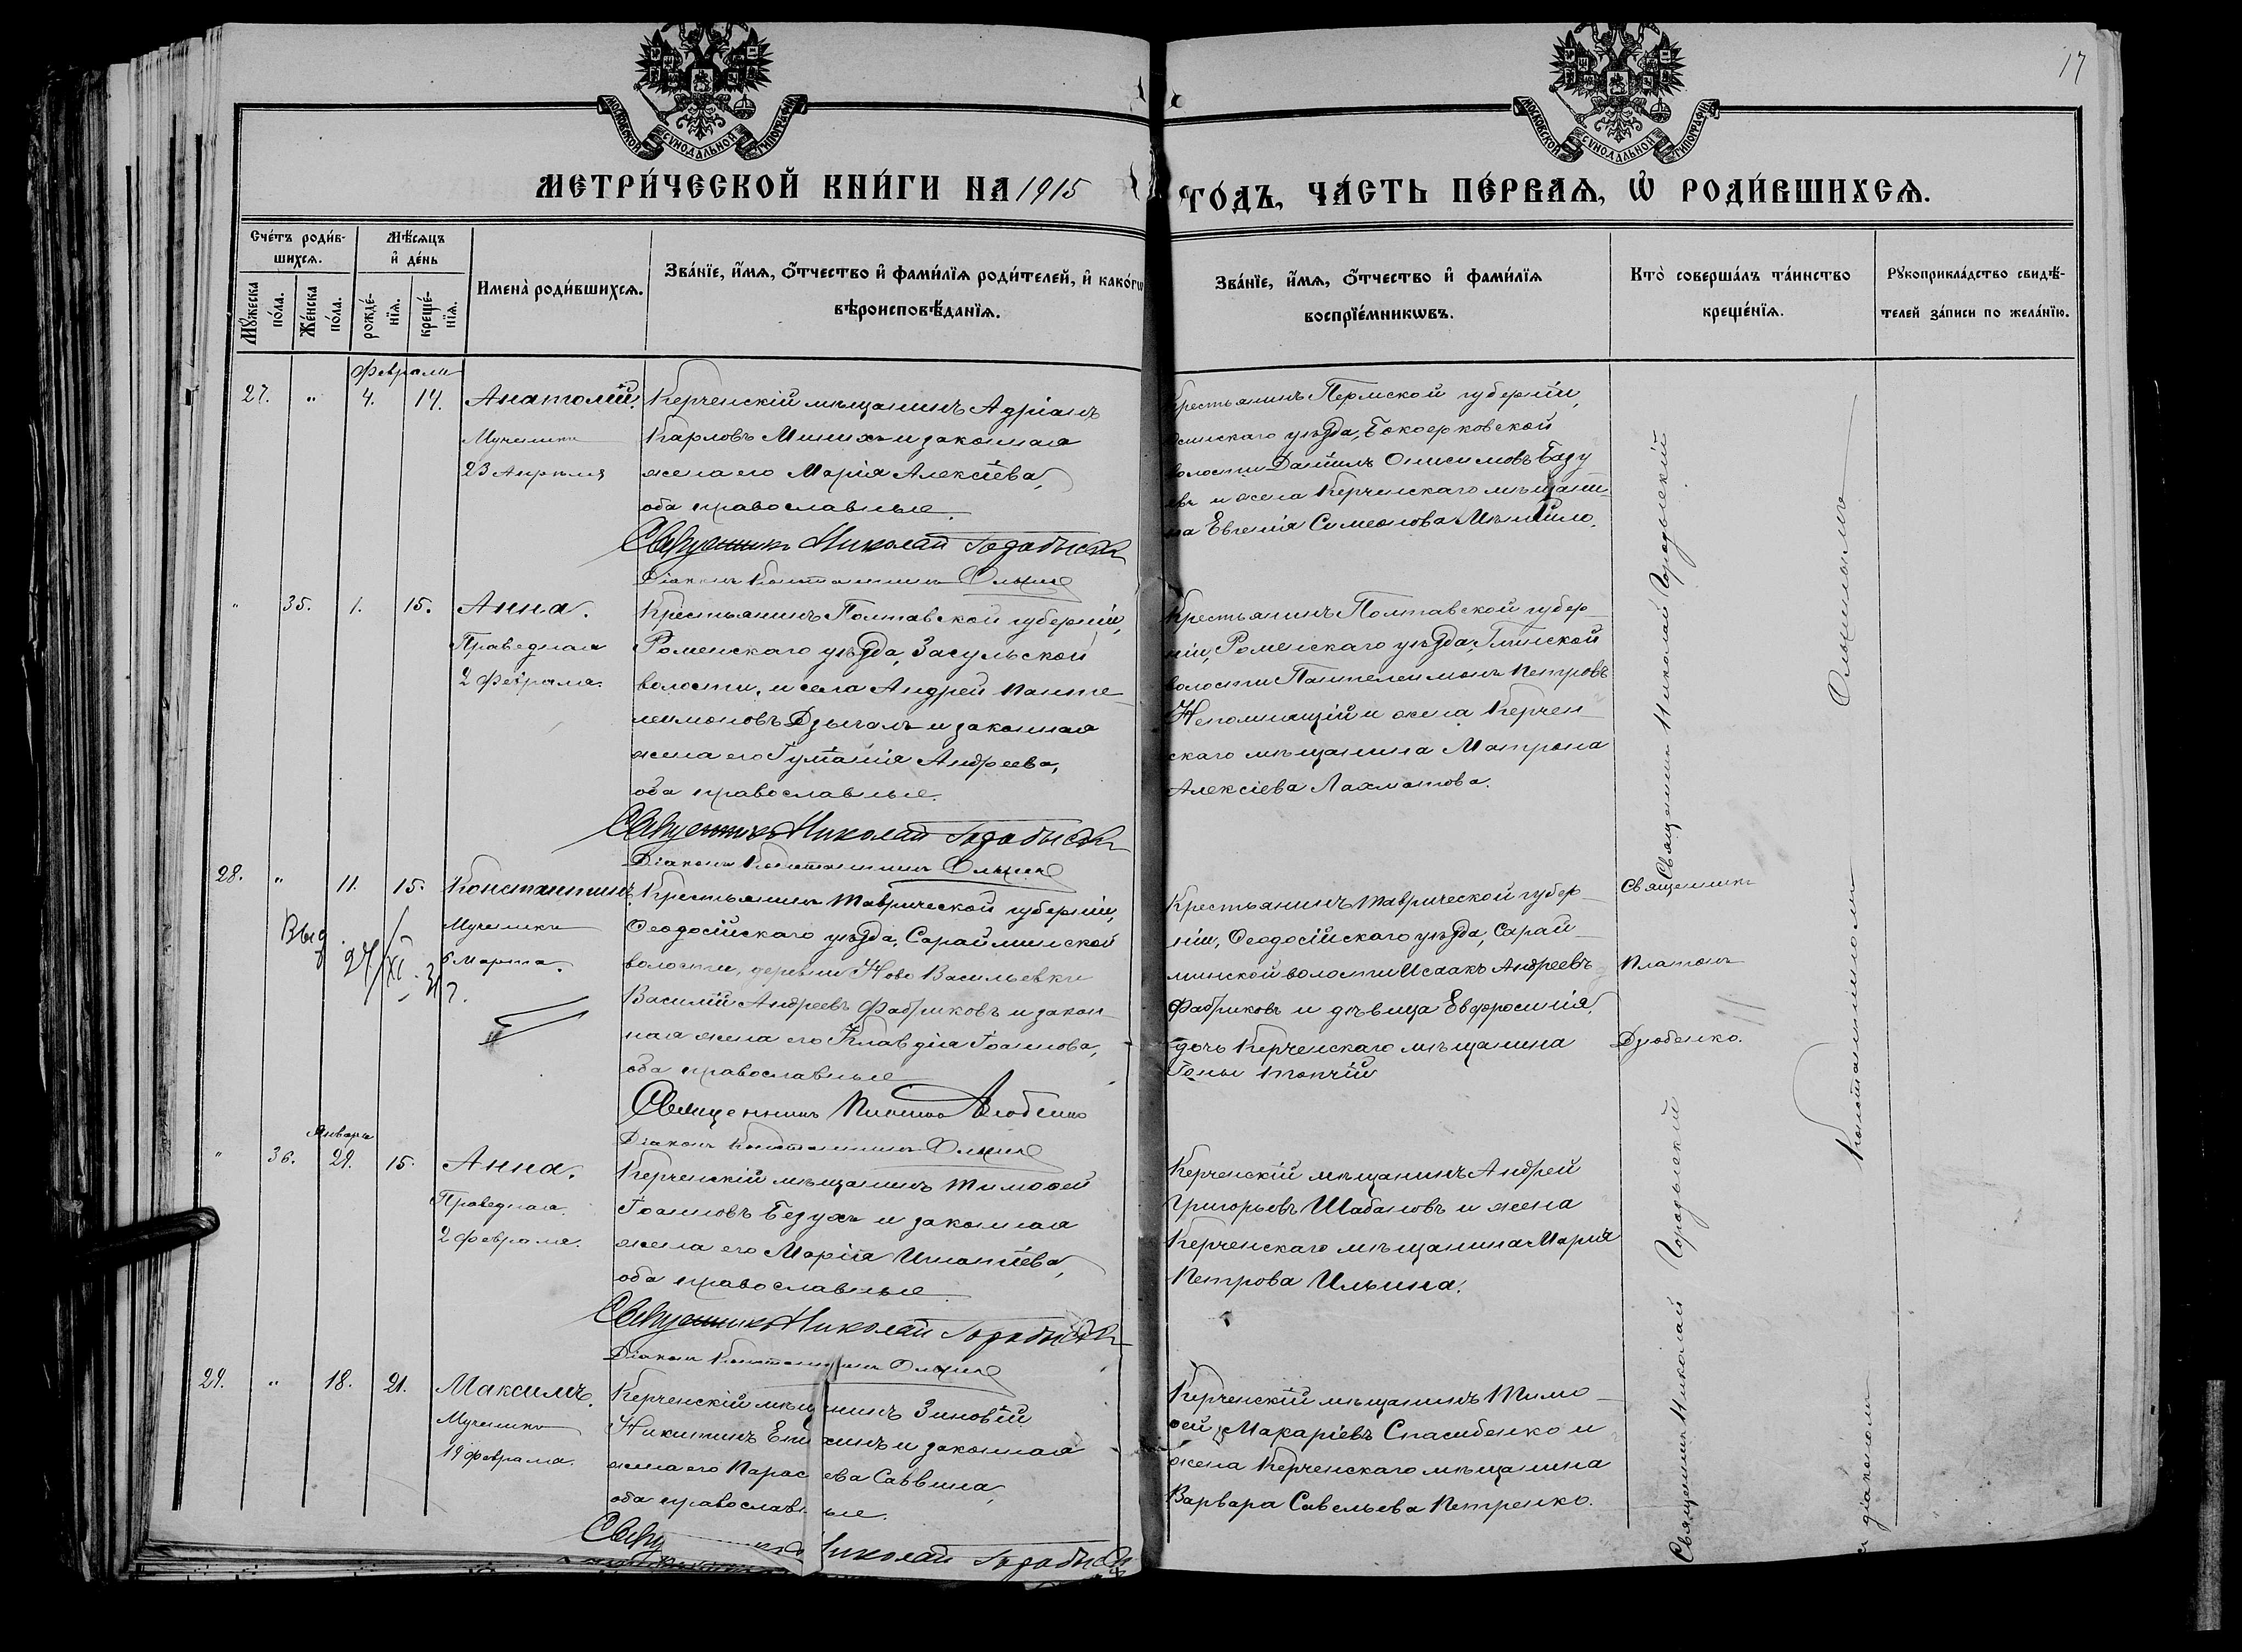 17
МОСКОВСКОЙ СѴНОДАЛЬНОЙ ТИПОГРАФІИ
МОСКОВСКОЙ СѴНОДАЛЬНОЙ ТИПОГРАФІИ
МЕТРИ́ЧЕСКОЙ КНИ́ГИ НА 1915
ГО́ДЪ, ЧА́СТЬ ПЕ́РВАѦ, Ѡ҆ РОДИ́ВШИХСѦ.
Сче́тъ роди́в-
шихсѧ.
Мꙋ́жеска
по́ла.
Же́нска
по́ла.
Мѣ́сѧцъ
и҆ де́нь
рожде́-
нїѧ.
креще́-
нїѧ.
Имена̀ роди́вшихсѧ.
Зва́нїе, и҆́мѧ, ѻ҆́тчество и҆ фами́лїѧ роди́телей, и҆ како́гѡ
вѣроисповѣ́данїѧ.
Зва́нїе, и҆́мѧ, ѻ҆́тчество и҆ фами́лїѧ
воспрїе́мникѡвъ.
Кто̀ соверша́лъ та́инство
креще́нїѧ.
Рꙋкоприкла́дство свидѣ́-
телей за́писи по жела́нїю.
Февраля
27. " 4. 14. Анатолій.
Мученика
23 Апрѣля
Керченскій мѣщанинъ Адріанъ
Карловъ Минихъ и законная
жена его Марія Алексіева,
оба православные.
Священникъ Николай
Діаконъ Константинъ
Крестьянинъ Пермской губерніи,
уѣзда,
волости Даніилъ Онисимовъ
и жена Керченскаго мѣщани-
на Евгенія Симеонова
" 35. 1. 15. Анна.
Праведная
2 Февраля.
Крестьянинъ Полтавской губерніи,
Роменскаго уѣзда, Засульской
волости, и села Андрей Панте-
леимоновъ Дзыгалъ и законная
жена его Андреева,
оба православные.
Священникъ Николай
Діаконъ Константинъ
Крестьянинъ Полтавской губер-
ніи, Роменскаго уѣзда, Глинской
волости Пантелеимонъ Петровъ
Непомнящій и жена Керчен-
скаго мѣщанина Матрона
Алексіева Лахматова.
28. " 11. 15. Константинъ.
Мученика
6 Марта.
Выд. 27/XI-31 г.
Крестьянинъ Таврической губерніи,
Ѳеодосійскаго уѣзда, Сарайминской
волости, деревни Ново Васильевки
Василій Андреевъ Фабриковъ и закон-
ная жена его Клавдія Іоаннова,
оба православные
Священникъ Платонъ Дзюбенко
Діаконъ Константинъ
Крестьянинъ Таврической губер-
ніи, Ѳеодосійскаго уѣзда, Сарай-
минской волости Исаакъ Андреевъ
Фабриковъ и дѣвица Евфросинія,
дочь Керченскаго мѣщанина
Священникъ
Платонъ
Дзюбенко.
Января
" 36. 29. 15. Анна.
Праведная.
2 Февраля.
Керченскій мѣщанинъ Тимоѳей
Іоанновъ Безухъ и законная
жена его Марія Игнатіева,
оба православные
Священникъ Николай
Діаконъ Константинъ
Керченскій мѣщанинъ Андрей
Григорьевъ Шабановъ и жена
Керченскаго мѣщанина Марія
Петрова Ильина.
29. " 18. 21. Максимъ.
Мученика
19 Февраля.
Керченскій мѣщ нинъ Зиновій
Никитинъ Епи хинъ и законная
жена его Парас ева Саввина,
оба православн ые.
Николай
Керченскій мѣщанинъ Тимо-
ѳей Макаріевъ Спасибенко и
жена Керченскаго мѣщанина
Варвара Савельева Петренко.
Священникъ Николай
Священникъ Николай
діакономъ
Константиномъ